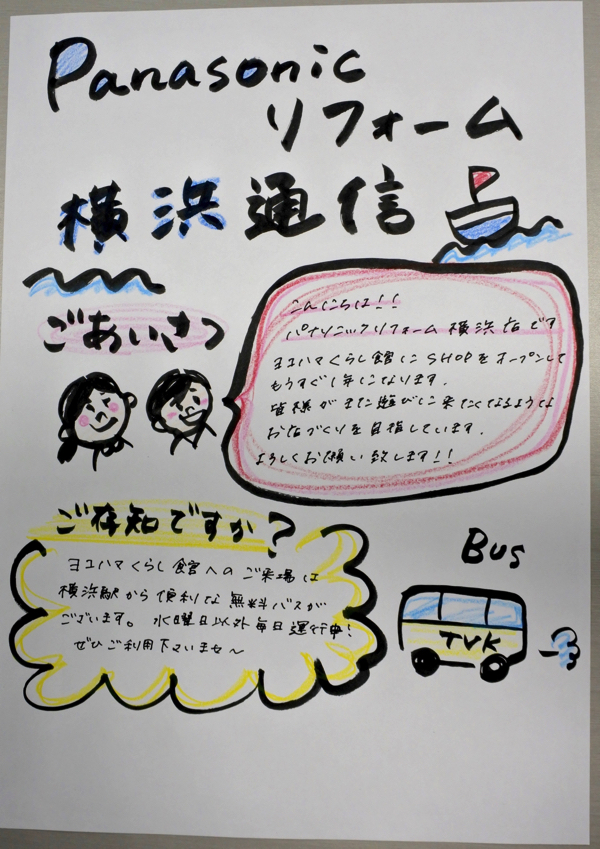 Panasonic
リフォーム
横浜通信
ごあいさつ
こんにちは!!
パナソニックリフォーム横浜店です
ヨコハマくらし館にSHOPをオープンして
もうすぐ1年になります.
皆様がまた遊びに来たくなるような
お店づくりを目指しています.
よろしくお願い致します!!
ご存知ですか?
ヨコハマくらし館へのご来場は
横浜駅から便利な無料バスが
ございます。水曜日以外毎日運行中!
ぜひご利用下さいませ〜
Bus
TVK